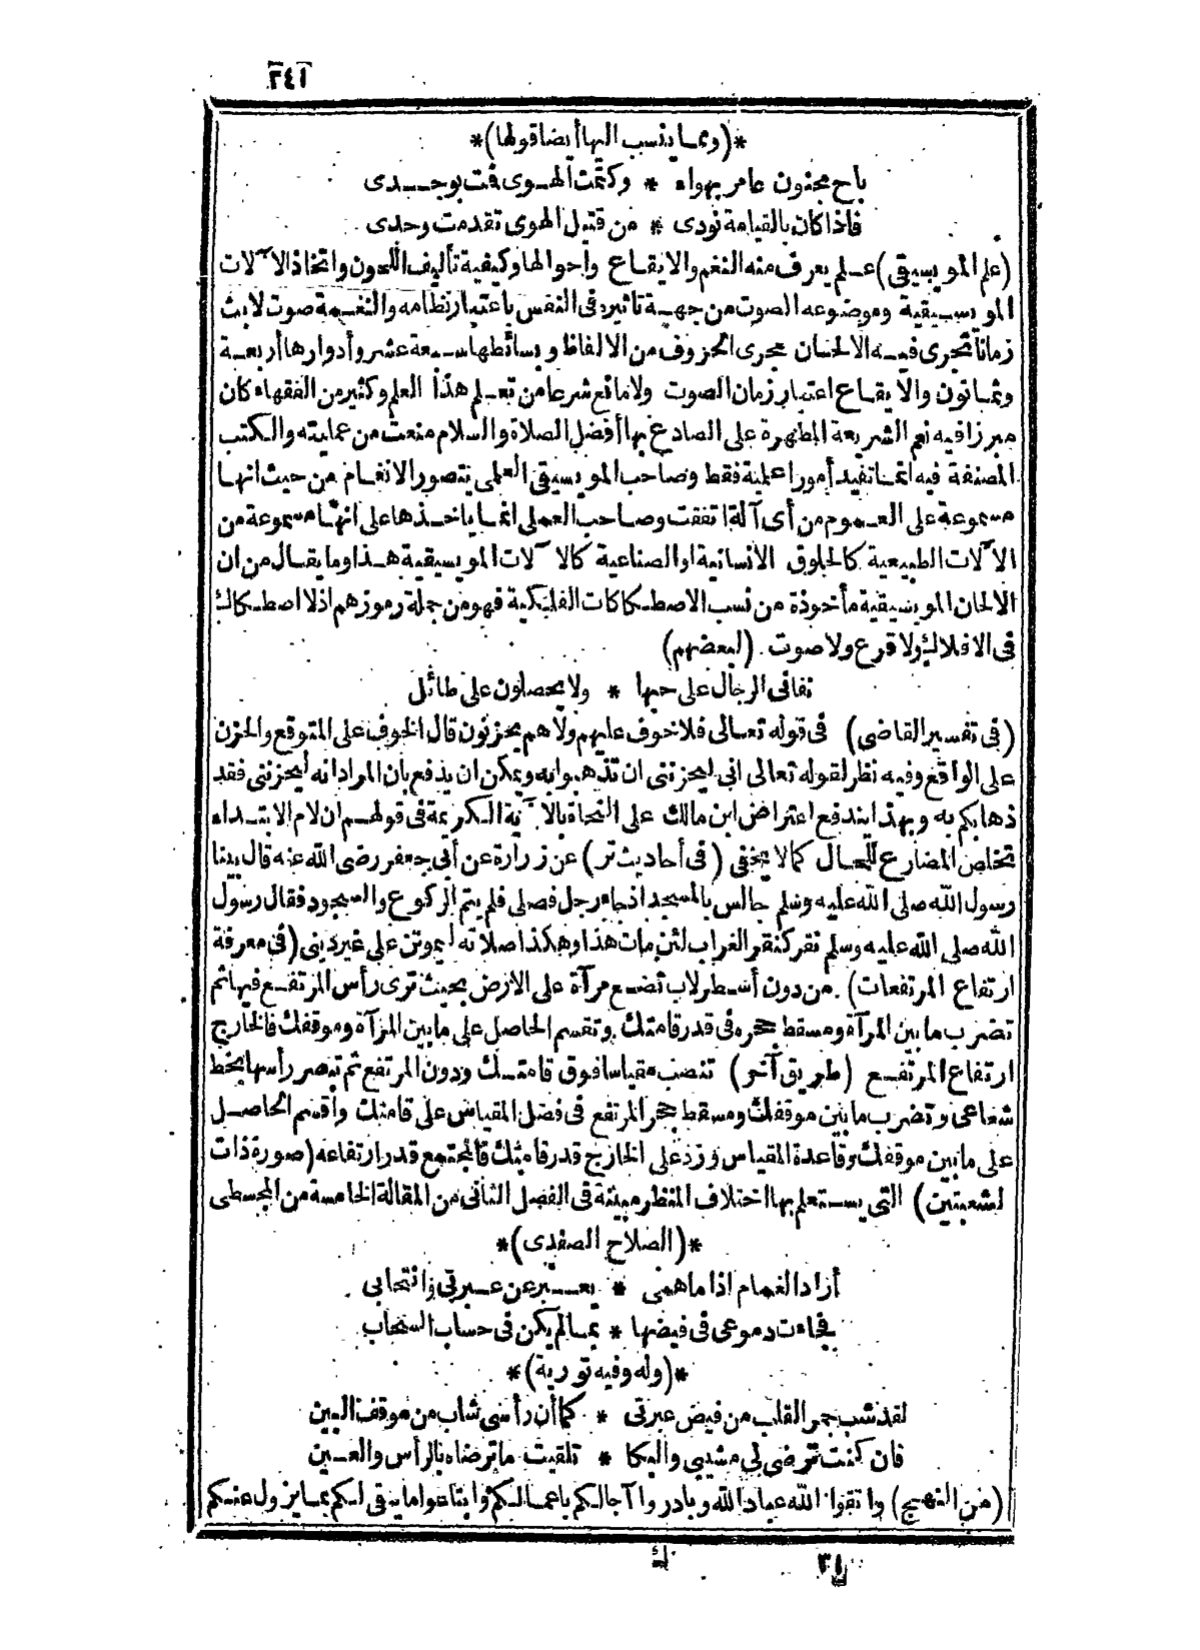 ٢٤١
*(ومما ينسب اليها أيضا قولها)*
باح مجنون عامر بهواه * وكتمت الهوى فمت بوجدى
فاذا كان بالقيامة نودى * من قتيل الهوى تقدمت وحدى
(علم الموسيقى) علم يعرف منه النغم والايقاع وأحوالها وكيفية تأليف اللحون واتخاذ الآلات
الموسيقية وموضوعه الصوت من جهة تأثيره فى النفس باعتبار نظامه والنغمة صوت لابث
زمانا تجرى فيه الالحان مجرى الحروف من الالفاظ وبسائطها سبعة عشر وأدوارها أربعة
وثمانون والايقاع اعتبار زمان الصوت ولا مانع شرعا من تعلم هذا العلم وكثير من الفقهاء كان
مبرزا فيه نعم الشريعة المطهرة على الصادع بها أفضل الصلاة والسلام منعت من عمليته والكتب
المصنفة فيه انما تفيد أمورا علمية فقط وصاحب الموسيقى العلمى يتصور الانغام من حيث انها
مسموعة على العموم من أى آلة اتفقت وصاحب العملى انما ياخذها على انها مسموعة من
الآلات الطبيعية كالحلوق الانسانية او الصناعية كالآلات الموسيقية هذا وما يقال من ان
الالحان الموسيقية مأخوذة من نسب الاصطكاكات الفلكية فهو من جملة رموزهم اذ لا اصطكاك
فى الافلاك ولا قرع ولا صوت (لبعضهم)
تفانى الرجال على حبها * ولا يحصلون على طائل
(فى تفسير القاضى) فى قوله تعالى فلا خوف عليهم ولا هم يحزنون قال الخوف على المتوقع والحزن
على الواقع وفيه نظر لقوله تعالى انى ليحزننى ان تذهبوا به ويمكن ان يدفع بأن المراد انه ليحزننى فقد
ذهابكم به وبهذا يندفع اعتراض ابن مالك على النحاة بالآية الكريمة فى قولهم ان لام الابتداء
تخلص المضارع للحال كما لا يخفى (فى أحاديث تر) عن زرارة عن أبى جعفر رضى الله عنه قال بينا
رسول الله صلى الله عليه وسلم جالس بالمسجد اذ جاء رجل فصلى فلم يتم الركوع والسجود فقال رسول
الله صلى الله عليه وسلم نقر كنقر الغراب لئن مات هذا وهكذا صلاته ليموتن على غير دينى (فى معرفة
ارتفاع المرتفعات) من دون أسطرلاب تضع مرآة على الارض بحيث ترى رأس المرتفع فيها ثم
تضرب ما بين المرآة ومسقط حجره فى قدر قامتك وتقسم الحاصل على ما بين المرآة وموقفك فالخارج
ارتفاع المرتفع (طريق آخر) تنصب مقياسا فوق قامتك ودون المرتفع ثم تبصر رأسها بخط
شعاعى وتضرب ما بين موقفك ومسقط حجر المرتفع فى فضل المقياس على قامتك واقسم الحاصل
على ما بين موقفك وقاعدة المقياس وزد على الخارج قدر قامتك فالمجتمع قدر ارتفاعه (صورة ذات
لشعبتين) التى يستعلم بها اختلاف المنظر مبينة فى الفصل الثانى من المقالة الخامسة من المجسطى
*(الصلاح الصفدى)*
أراد الغمام اذا ما همى * يعبر عن عبرتى وانتحابى
فجاءت دموعى فى فيضها * بما لم يكن فى حساب السحاب
*(وله وفيه تورية)*
لقد شب جمر القلب من فيض عبرتى * كما أن رأسى شاب من موقف البين
فان كنت ترضى لى مشيبى والبكا * تلقيت ما ترضاه بالرأس والعين
(من النهج) واتقوا الله عباد الله وبادروا آجالكم باعمالكم وابتاعوا ما يبقى لكم بما يزول عنكم
٣١ ك